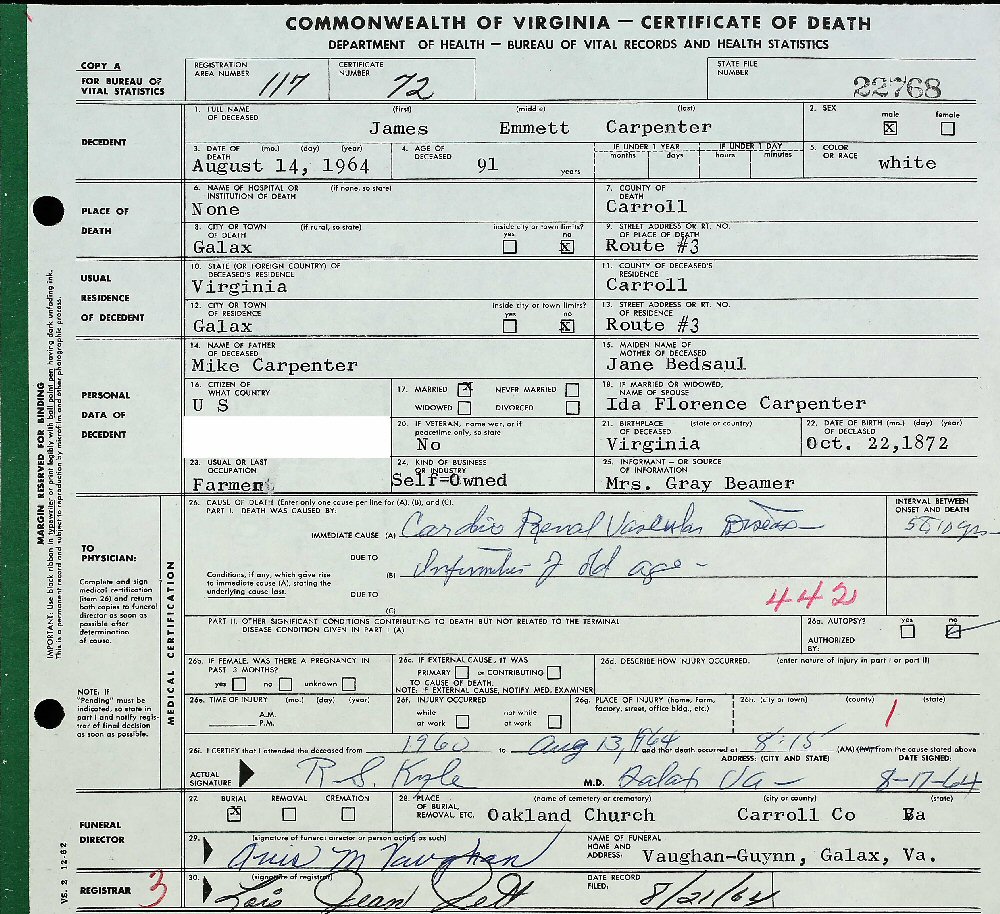 COMMONWEALTH OF VIRGINIA — CERTIFICATE OF DEATH
DEPARTMENT OF HEALTH — BUREAU OF VITAL RECORDS AND HEALTH STATISTICS
COPY A
FOR BUREAU OF VITAL STATISTICS
REGISTRATION AREA NUMBER 117
CERTIFICATE NUMBER 72
STATE FILE NUMBER 22768
DECEDENT
1. FULL NAME OF DECEASED (first) (middle) (last)
James Emmett Carpenter
2. SEX male X female
3. DATE OF DEATH (mo.) (day) (year)
August 14, 1964
4. AGE OF DECEASED 91 years
IF UNDER 1 YEAR months days
IF UNDER 1 DAY hours minutes
5. COLOR OR RACE white
PLACE OF DEATH
6. NAME OF HOSPITAL OR INSTITUTION OF DEATH (if none, so state)
None
7. COUNTY OF DEATH
Carroll
8. CITY OR TOWN OF DEATH (if rural, so state)
Galax
inside city or town limits? yes no X
9. STREET ADDRESS OR RT. NO. OF PLACE OF DEATH
Route #3
USUAL RESIDENCE OF DECEDENT
10. STATE (OR FOREIGN COUNTRY) OF DECEASED'S RESIDENCE
Virginia
11. COUNTY OF DECEASED'S RESIDENCE
Carroll
12. CITY OR TOWN OF RESIDENCE
Galax
inside city or town limits? yes no X
13. STREET ADDRESS OR RT. NO. OF RESIDENCE
Route #3
PERSONAL DATA OF DECEDENT
14. NAME OF FATHER OF DECEASED
Mike Carpenter
15. MAIDEN NAME OF MOTHER OF DECEASED
Jane Bedsaul
16. CITIZEN OF WHAT COUNTRY
U S
17. MARRIED X NEVER MARRIED
WIDOWED DIVORCED
18. IF MARRIED OR WIDOWED, NAME OF SPOUSE
Ida Florence Carpenter
20. IF VETERAN, name war, or if peacetime only, so state
No
21. BIRTHPLACE (state or country) OF DECEASED
Virginia
22. DATE OF BIRTH (mo.) (day) (year) OF DECEASED
Oct. 22,1872
23. USUAL OR LAST OCCUPATION
Farmer
24. KIND OF BUSINESS OR INDUSTRY
Self=Owned
25. INFORMANT - OR SOURCE OF INFORMATION
Mrs. Gray Beamer
MARGIN RESERVED FOR BINDING
IMPORTANT: Use black ribbon in typewriter or print legibly with ball point pen having dark unfading ink.
This is a permanent record and subject to reproduction by microfilm and other photographic process.
TO PHYSICIAN:
Complete and sign medical certification (item 26) and return both copies to funeral director as soon as possible after determination of cause.
NOTE: If "Pending" must be indicated, so state in part I and notify registrar of final decision as soon as possible.
MEDICAL CERTIFICATION
26. CAUSE OF DEATH (Enter only one cause per line for (A), (B), and (C).
PART I. DEATH WAS CAUSED BY:
INTERVAL BETWEEN ONSET AND DEATH
IMMEDIATE CAUSE (A) Cardio Renal Vascular Disease
5 to 10 yrs
DUE TO
Conditions, if any, which gave rise to immediate cause (A), stating the underlying cause last.
(B) Infirmities of old age -
DUE TO
(C)
442
PART II. OTHER SIGNIFICANT CONDITIONS CONTRIBUTING TO DEATH BUT NOT RELATED TO THE TERMINAL DISEASE CONDITION GIVEN IN PART I (A)
26a. AUTOPSY? yes no
AUTHORIZED BY:
26b. IF FEMALE, WAS THERE A PREGNANCY IN PAST 3 MONTHS?
yes no unknown
26c. IF EXTERNAL CAUSE, IT WAS
PRIMARY or CONTRIBUTING
TO CAUSE OF DEATH.
NOTE: IF EXTERNAL CAUSE, NOTIFY MED. EXAMINER
26d. DESCRIBE HOW INJURY OCCURRED. (enter nature of injury in part I or part II)
26e. TIME OF INJURY (mo.) (day) (year)
A.M.
P.M.
26f. INJURY OCCURRED
while at work not while at work
26g. PLACE OF INJURY (home, farm, factory, street, office bldg., etc.)
26h. (city or town) (county) (state)
1
26i. I CERTIFY that I attended the deceased from 1960 to Aug 13, 1964 and that death occurred at 8:15 (AM) (PM) from the cause stated above
ADDRESS: (CITY AND STATE) DATE SIGNED:
ACTUAL SIGNATURE R S. Kyle M.D. Galax Va - 8-17-64
FUNERAL DIRECTOR
27. BURIAL X REMOVAL CREMATION
28. PLACE OF BURIAL, REMOVAL, ETC. (name of cemetery or crematory) (city or county) (state)
Oakland Church Carroll Co Va
29. (signature of funeral director or person acting as such)
M Vaughan
NAME OF FUNERAL HOME AND ADDRESS: Vaughan-Guynn, Galax, Va.
REGISTRAR 3
30. (signature of registrar)
Lois Jean
DATE RECORD FILED: 8/21/64
VS. 2 12-62